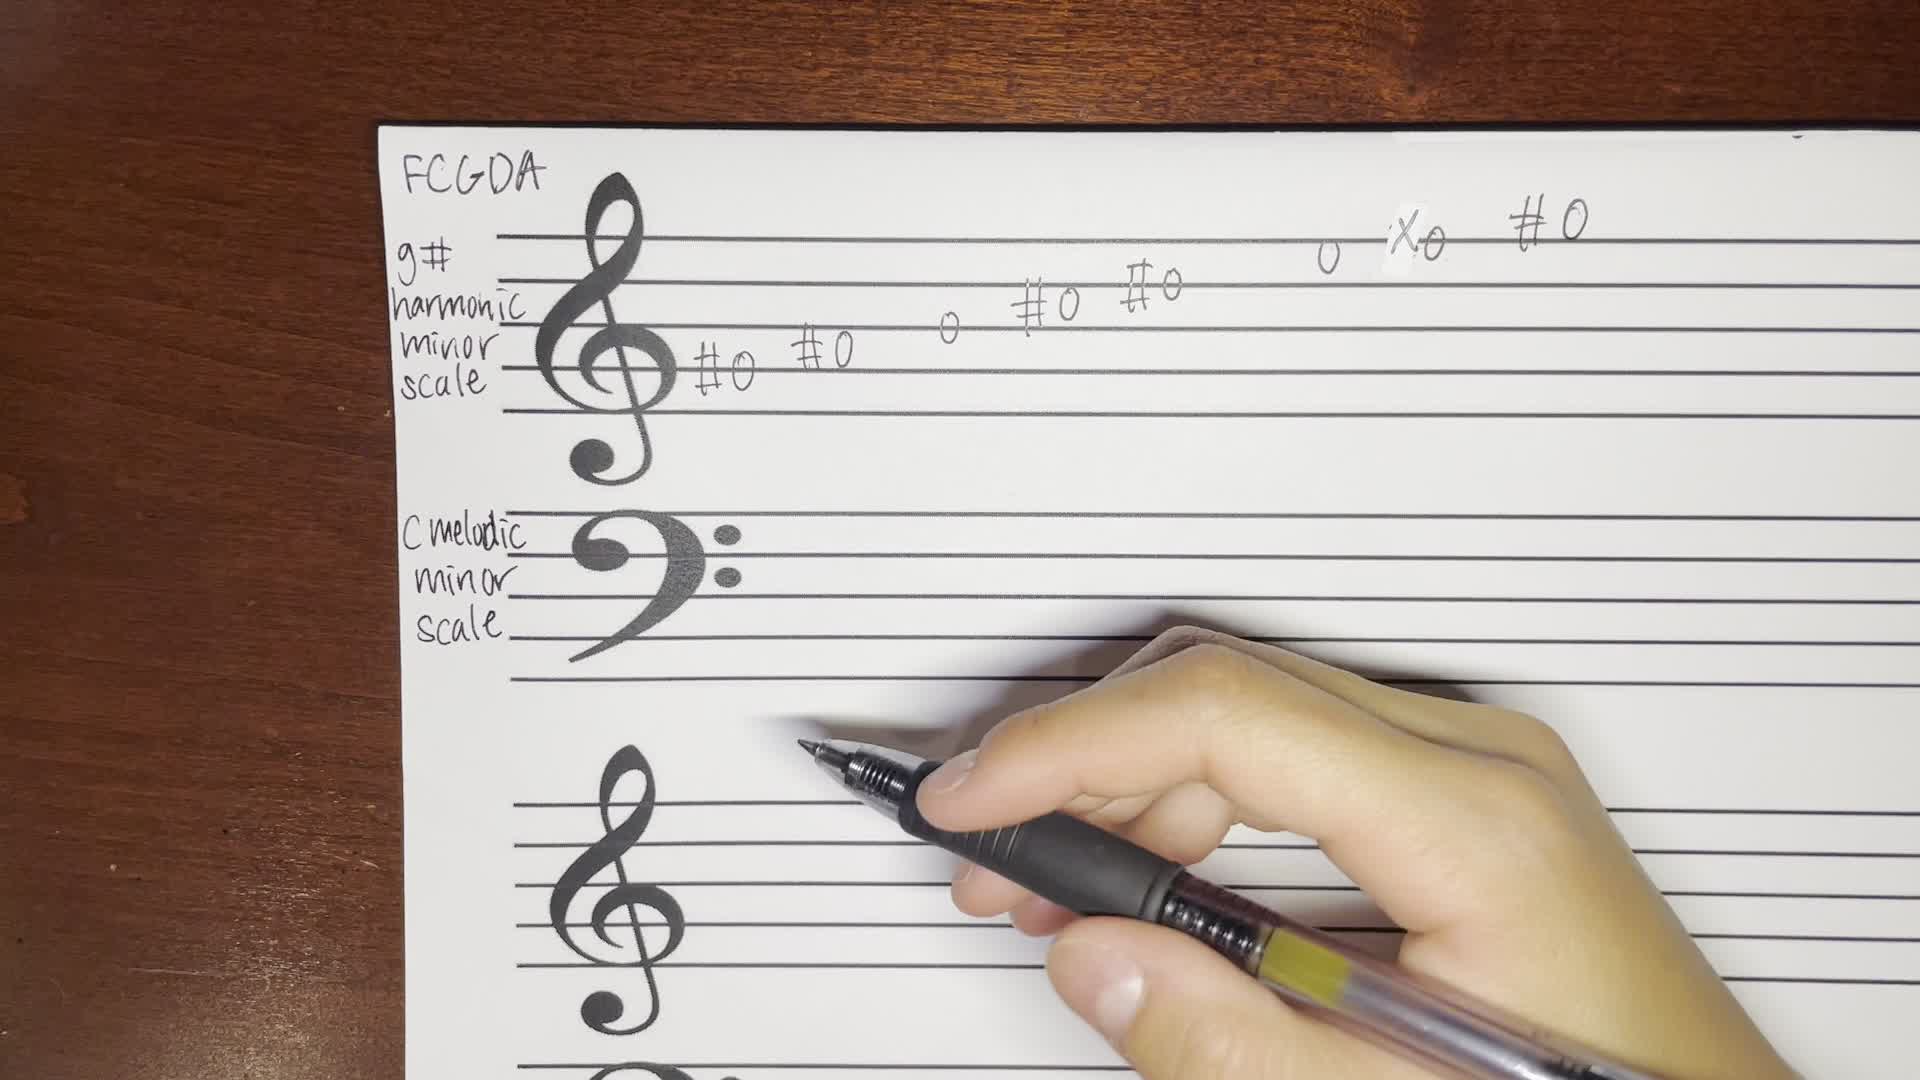 FCGDA
g#
harmonic
minor
scale
C melodic
minor
scale